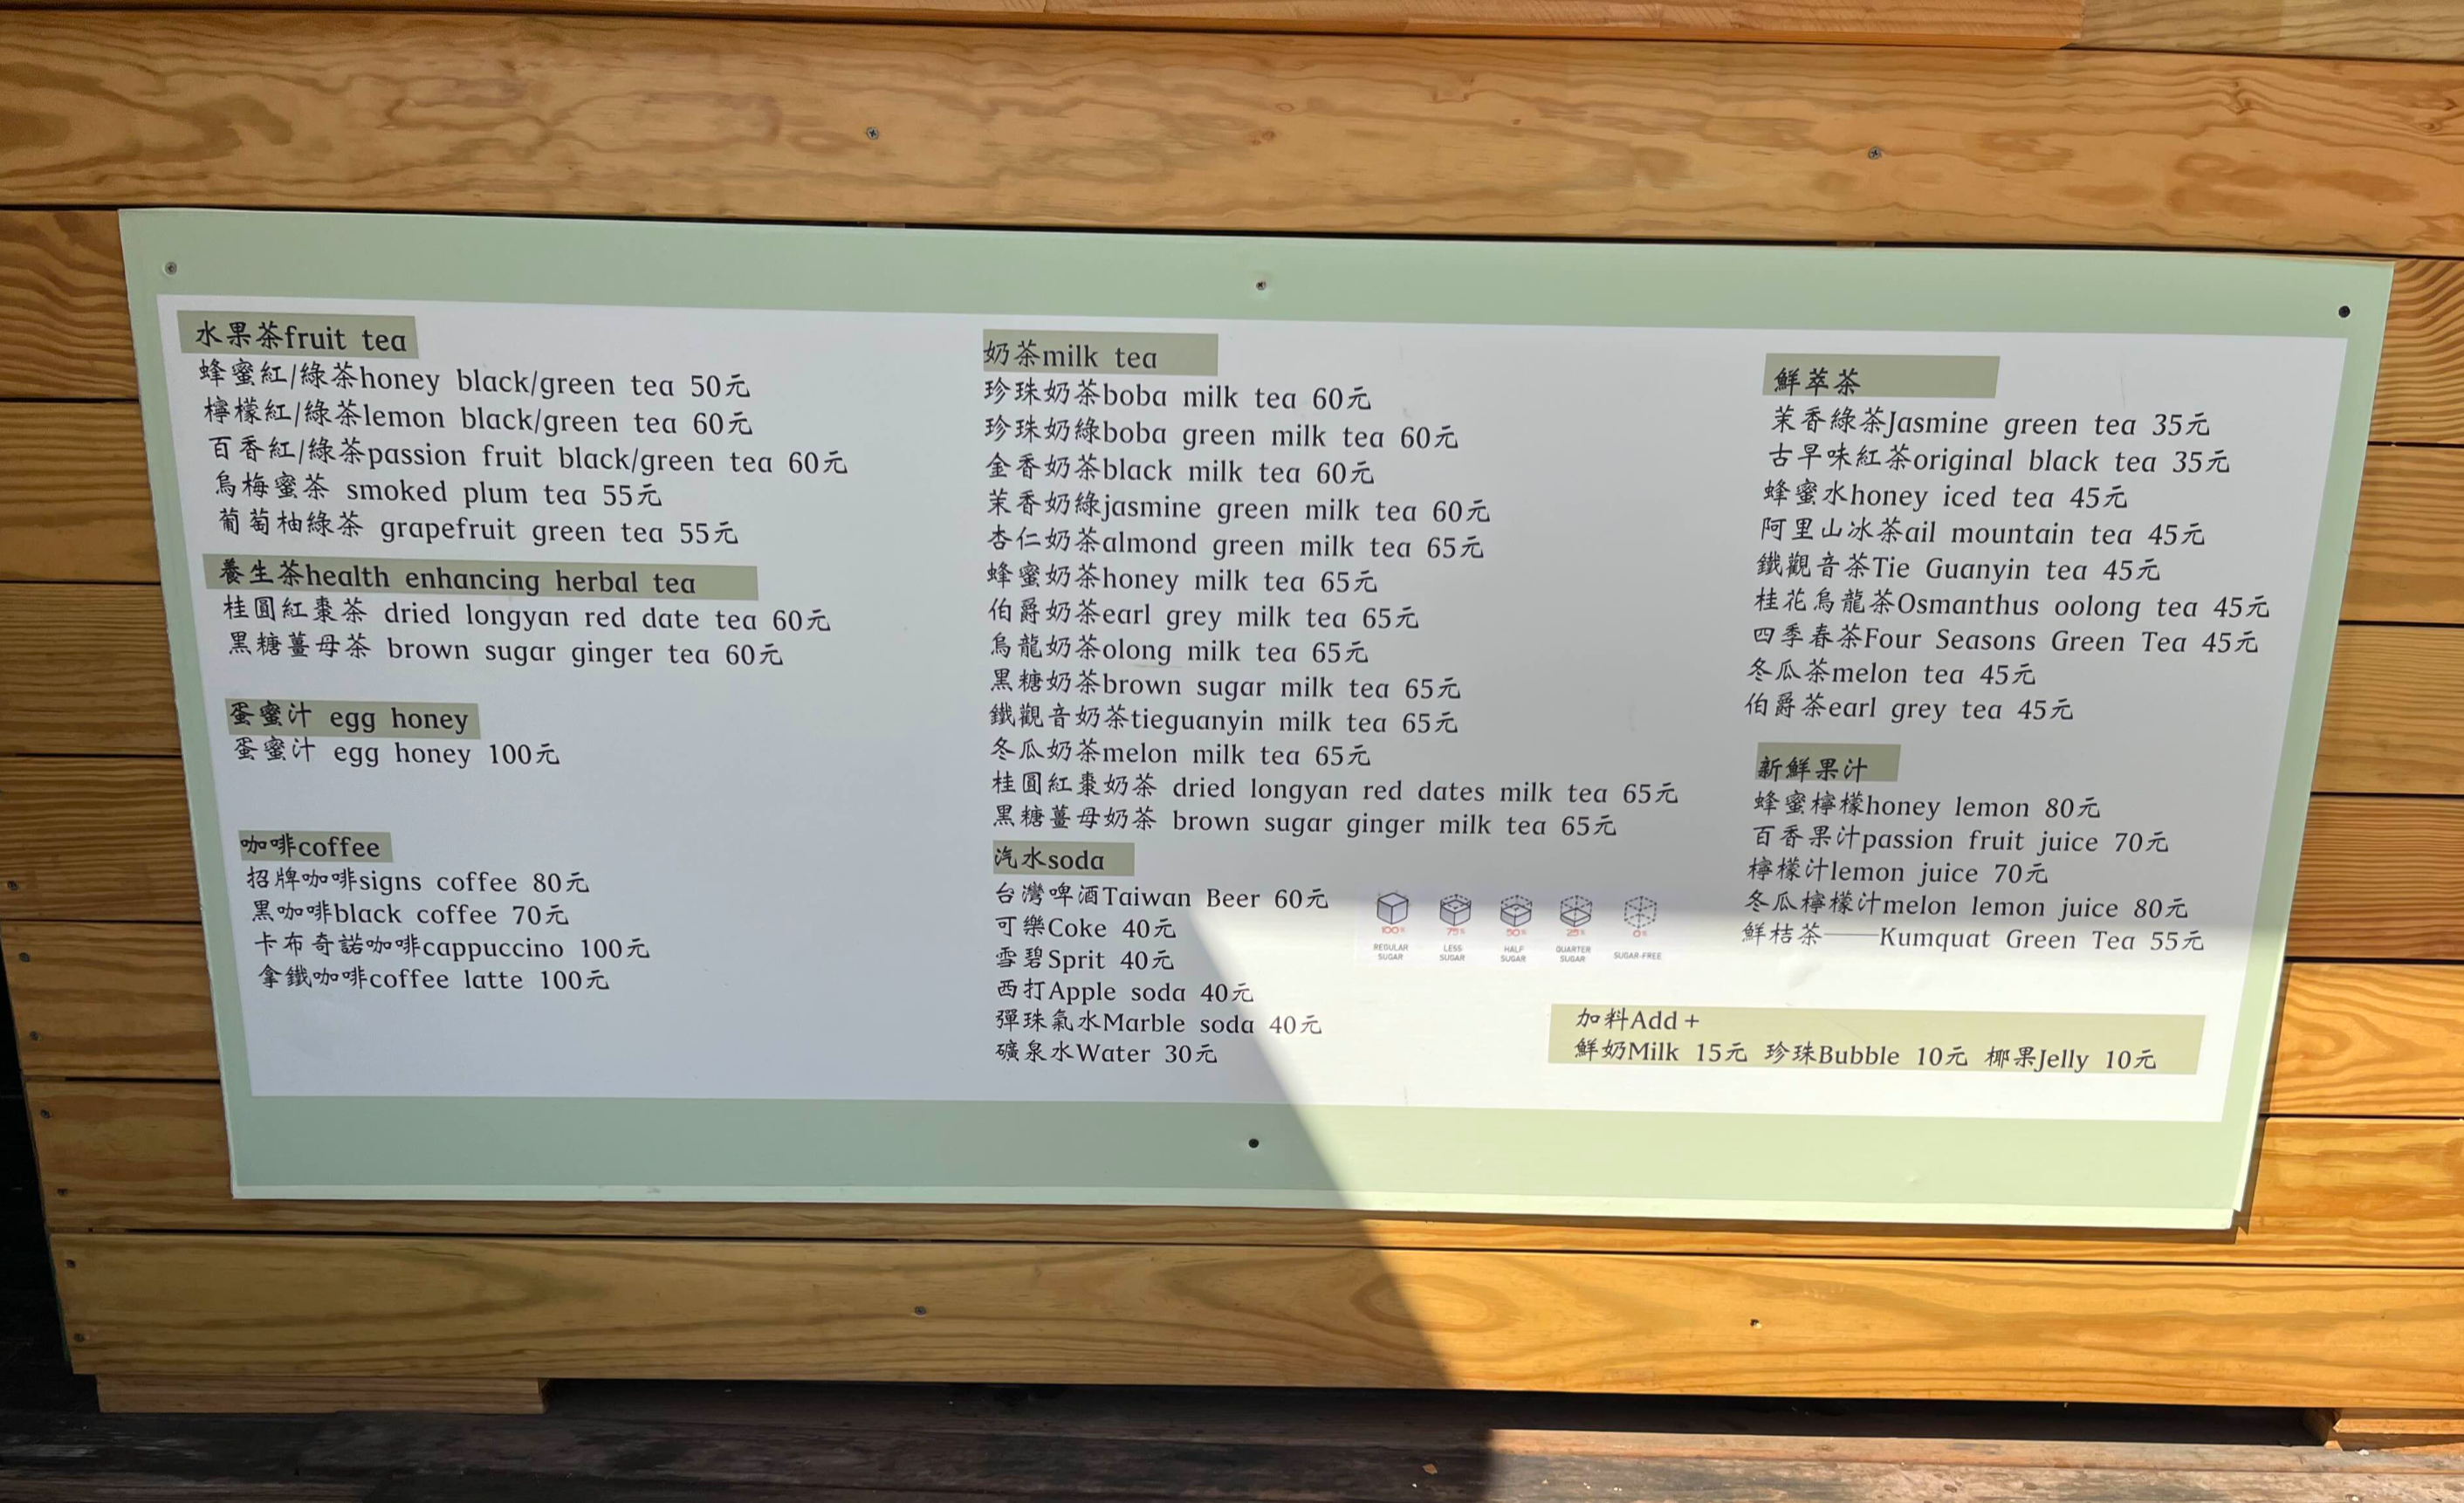 水果茶fruit tea
蜂蜜紅/綠茶honey black/green tea 50元
檸檬紅/綠茶lemon black/green tea 60元
百香紅/綠茶passion fruit black/green tea 60元
烏梅蜜茶 smoked plum tea 55元
葡萄柚綠茶 grapefruit green tea 55元
養生茶health enhancing herbal tea
桂圓紅棗茶 dried longyan red date tea 60元
黑糖薑母茶 brown sugar ginger tea 60元
蛋蜜汁 egg honey
蛋蜜汁 egg honey 100元
咖啡coffee
招牌咖啡signs coffee 80元
黑咖啡black coffee 70元
卡布奇諾咖啡cappuccino 100元
拿鐵咖啡coffee latte 100元
奶茶milk tea
珍珠奶茶boba milk tea 60元
珍珠奶綠boba green milk tea 60元
金香奶茶black milk tea 60元
茉香奶綠jasmine green milk tea 60元
杏仁奶茶almond green milk tea 65元
蜂蜜奶茶honey milk tea 65元
伯爵奶茶earl grey milk tea 65元
烏龍奶茶olong milk tea 65元
黑糖奶茶brown sugar milk tea 65元
鐵觀音奶茶tieguanyin milk tea 65元
冬瓜奶茶melon milk tea 65元
桂圓紅棗奶茶 dried longyan red dates milk tea 65元
黑糖薑母奶茶 brown sugar ginger milk tea 65元
汽水soda
台灣啤酒Taiwan Beer 60元
可樂Coke 40元
雪碧Sprit 40元
西打Apple soda 40元
彈珠氣水Marble soda 40元
礦泉水Water 30元
100% 75% 50% 25% 0%
REGULAR SUGAR
LESS SUGAR
HALF SUGAR
QUARTER SUGAR
SUGAR-FREE
鮮萃茶
茉香綠茶Jasmine green tea 35元
古早味紅茶original black tea 35元
蜂蜜水honey iced tea 45元
阿里山冰茶ail mountain tea 45元
鐵觀音茶Tie Guanyin tea 45元
桂花烏龍茶Osmanthus oolong tea 45元
四季春茶Four Seasons Green Tea 45元
冬瓜茶melon tea 45元
伯爵茶earl grey tea 45元
新鮮果汁
蜂蜜檸檬honey lemon 80元
百香果汁passion fruit juice 70元
檸檬汁lemon juice 70元
冬瓜檸檬汁melon lemon juice 80元
鮮桔茶——Kumquat Green Tea 55元
加料Add+
鮮奶Milk 15元 珍珠Bubble 10元 椰果Jelly 10元